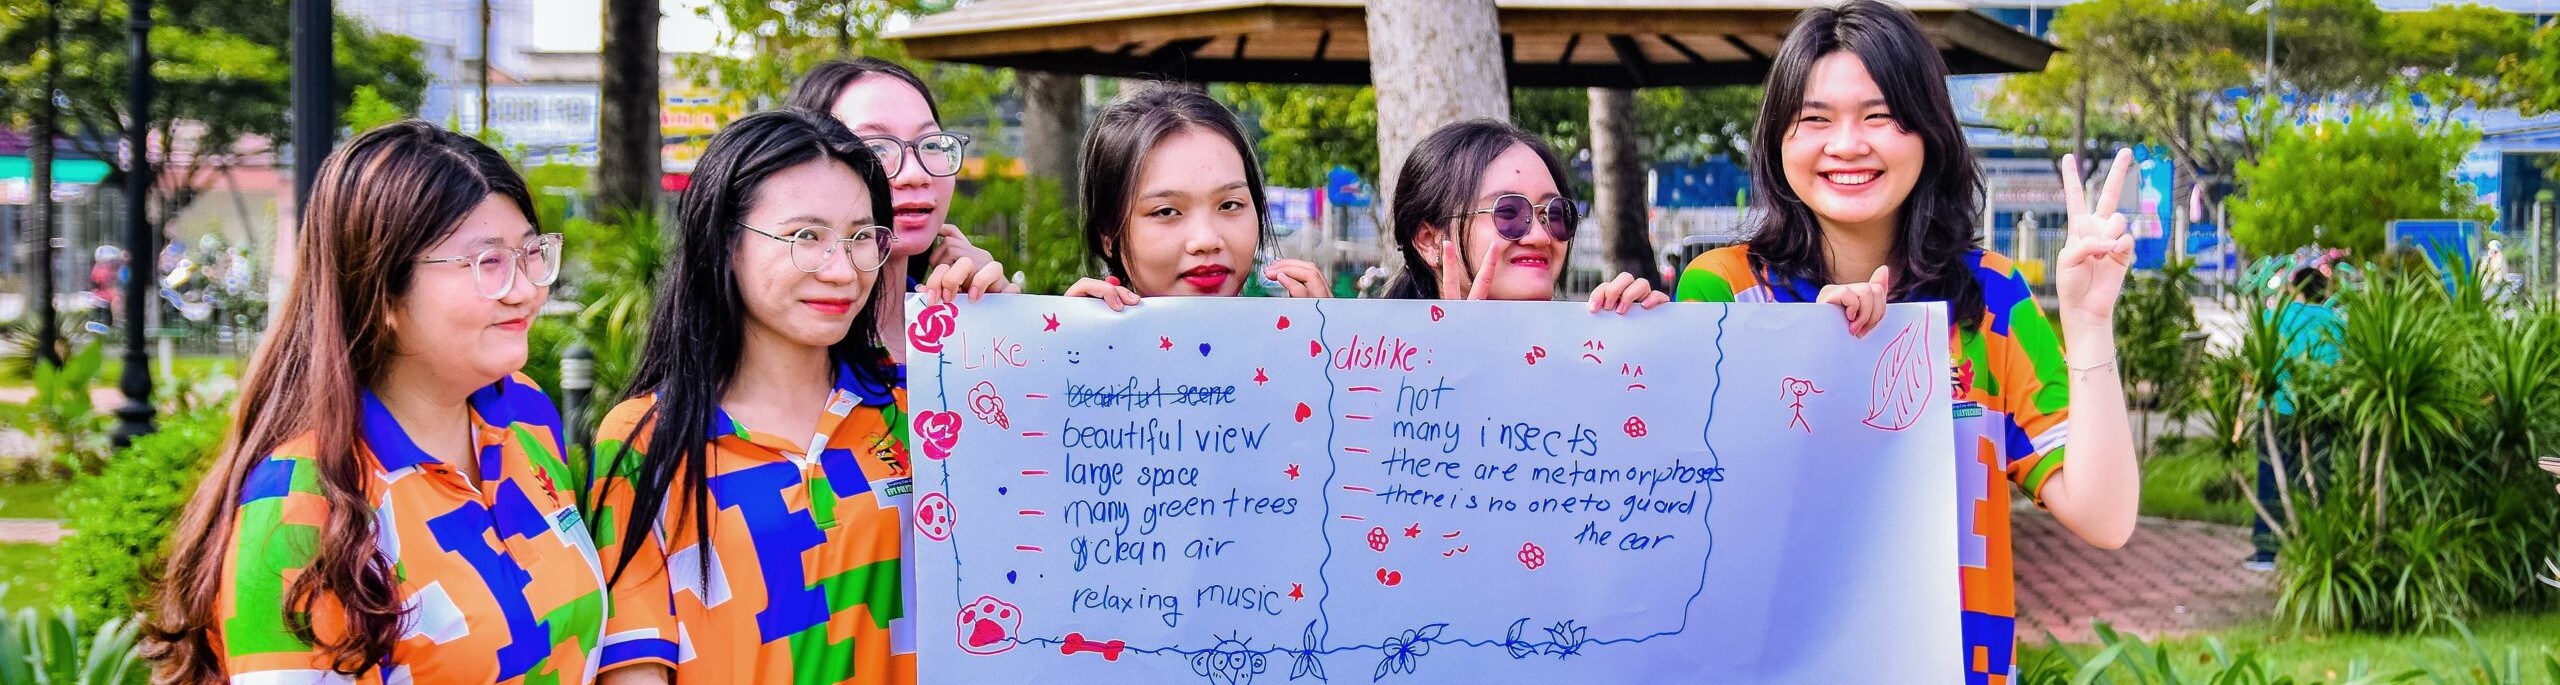 Like :
beautiful scene
beautiful view
large space
many green trees
clean air
relaxing music
dislike :
hot
many insects
there are metamorphoses
there is no one to guard
the car
FPT POLYTECHNIC
POLYTECHNIC